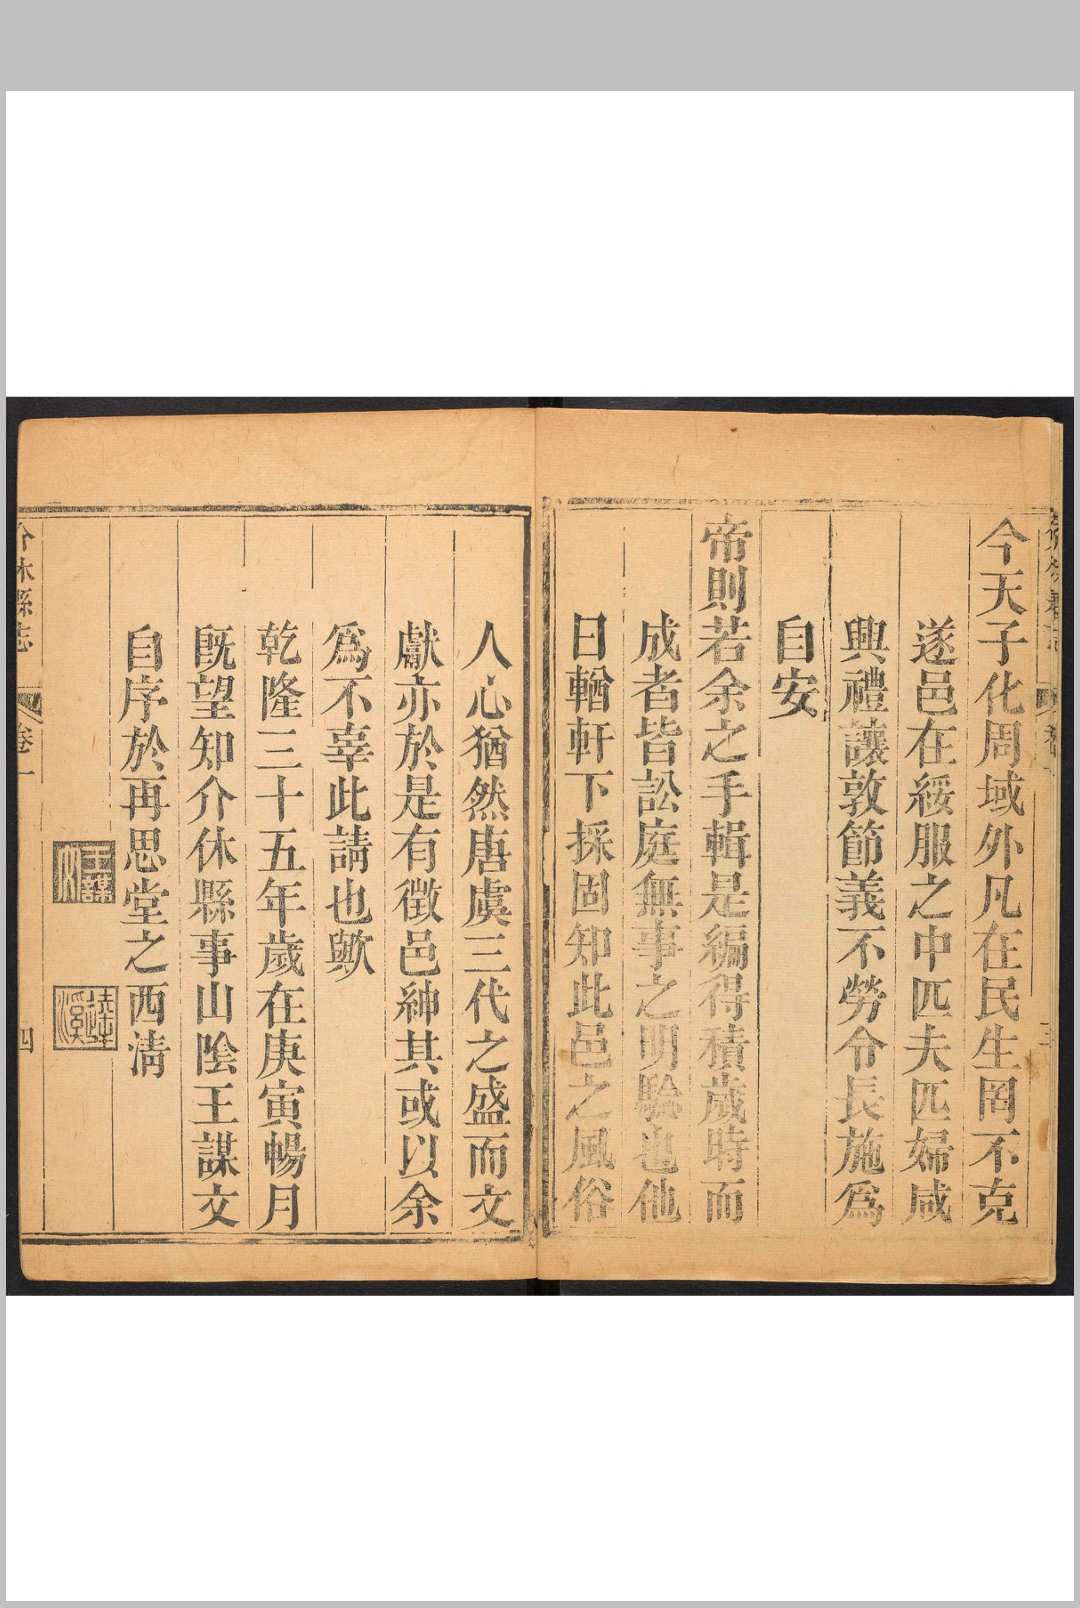 今天子化周域外凡在民生罔不克
遂邑在綏服之中匹夫匹婦咸
興禮讓敦節義不勞令長施爲
自安
帝則若余之手輯是編得積歲時而
成者皆訟庭無事之明驗也他
日輶軒下採固知此邑之風俗
人心猶然唐虞三代之盛而文
獻亦於是有徵邑紳其或以余
爲不辜此請也歟
乾隆三十五年歲在庚寅暢月
旣望知介休縣事山陰王謀文
自序於再思堂之西清
介休縣志
卷一
四